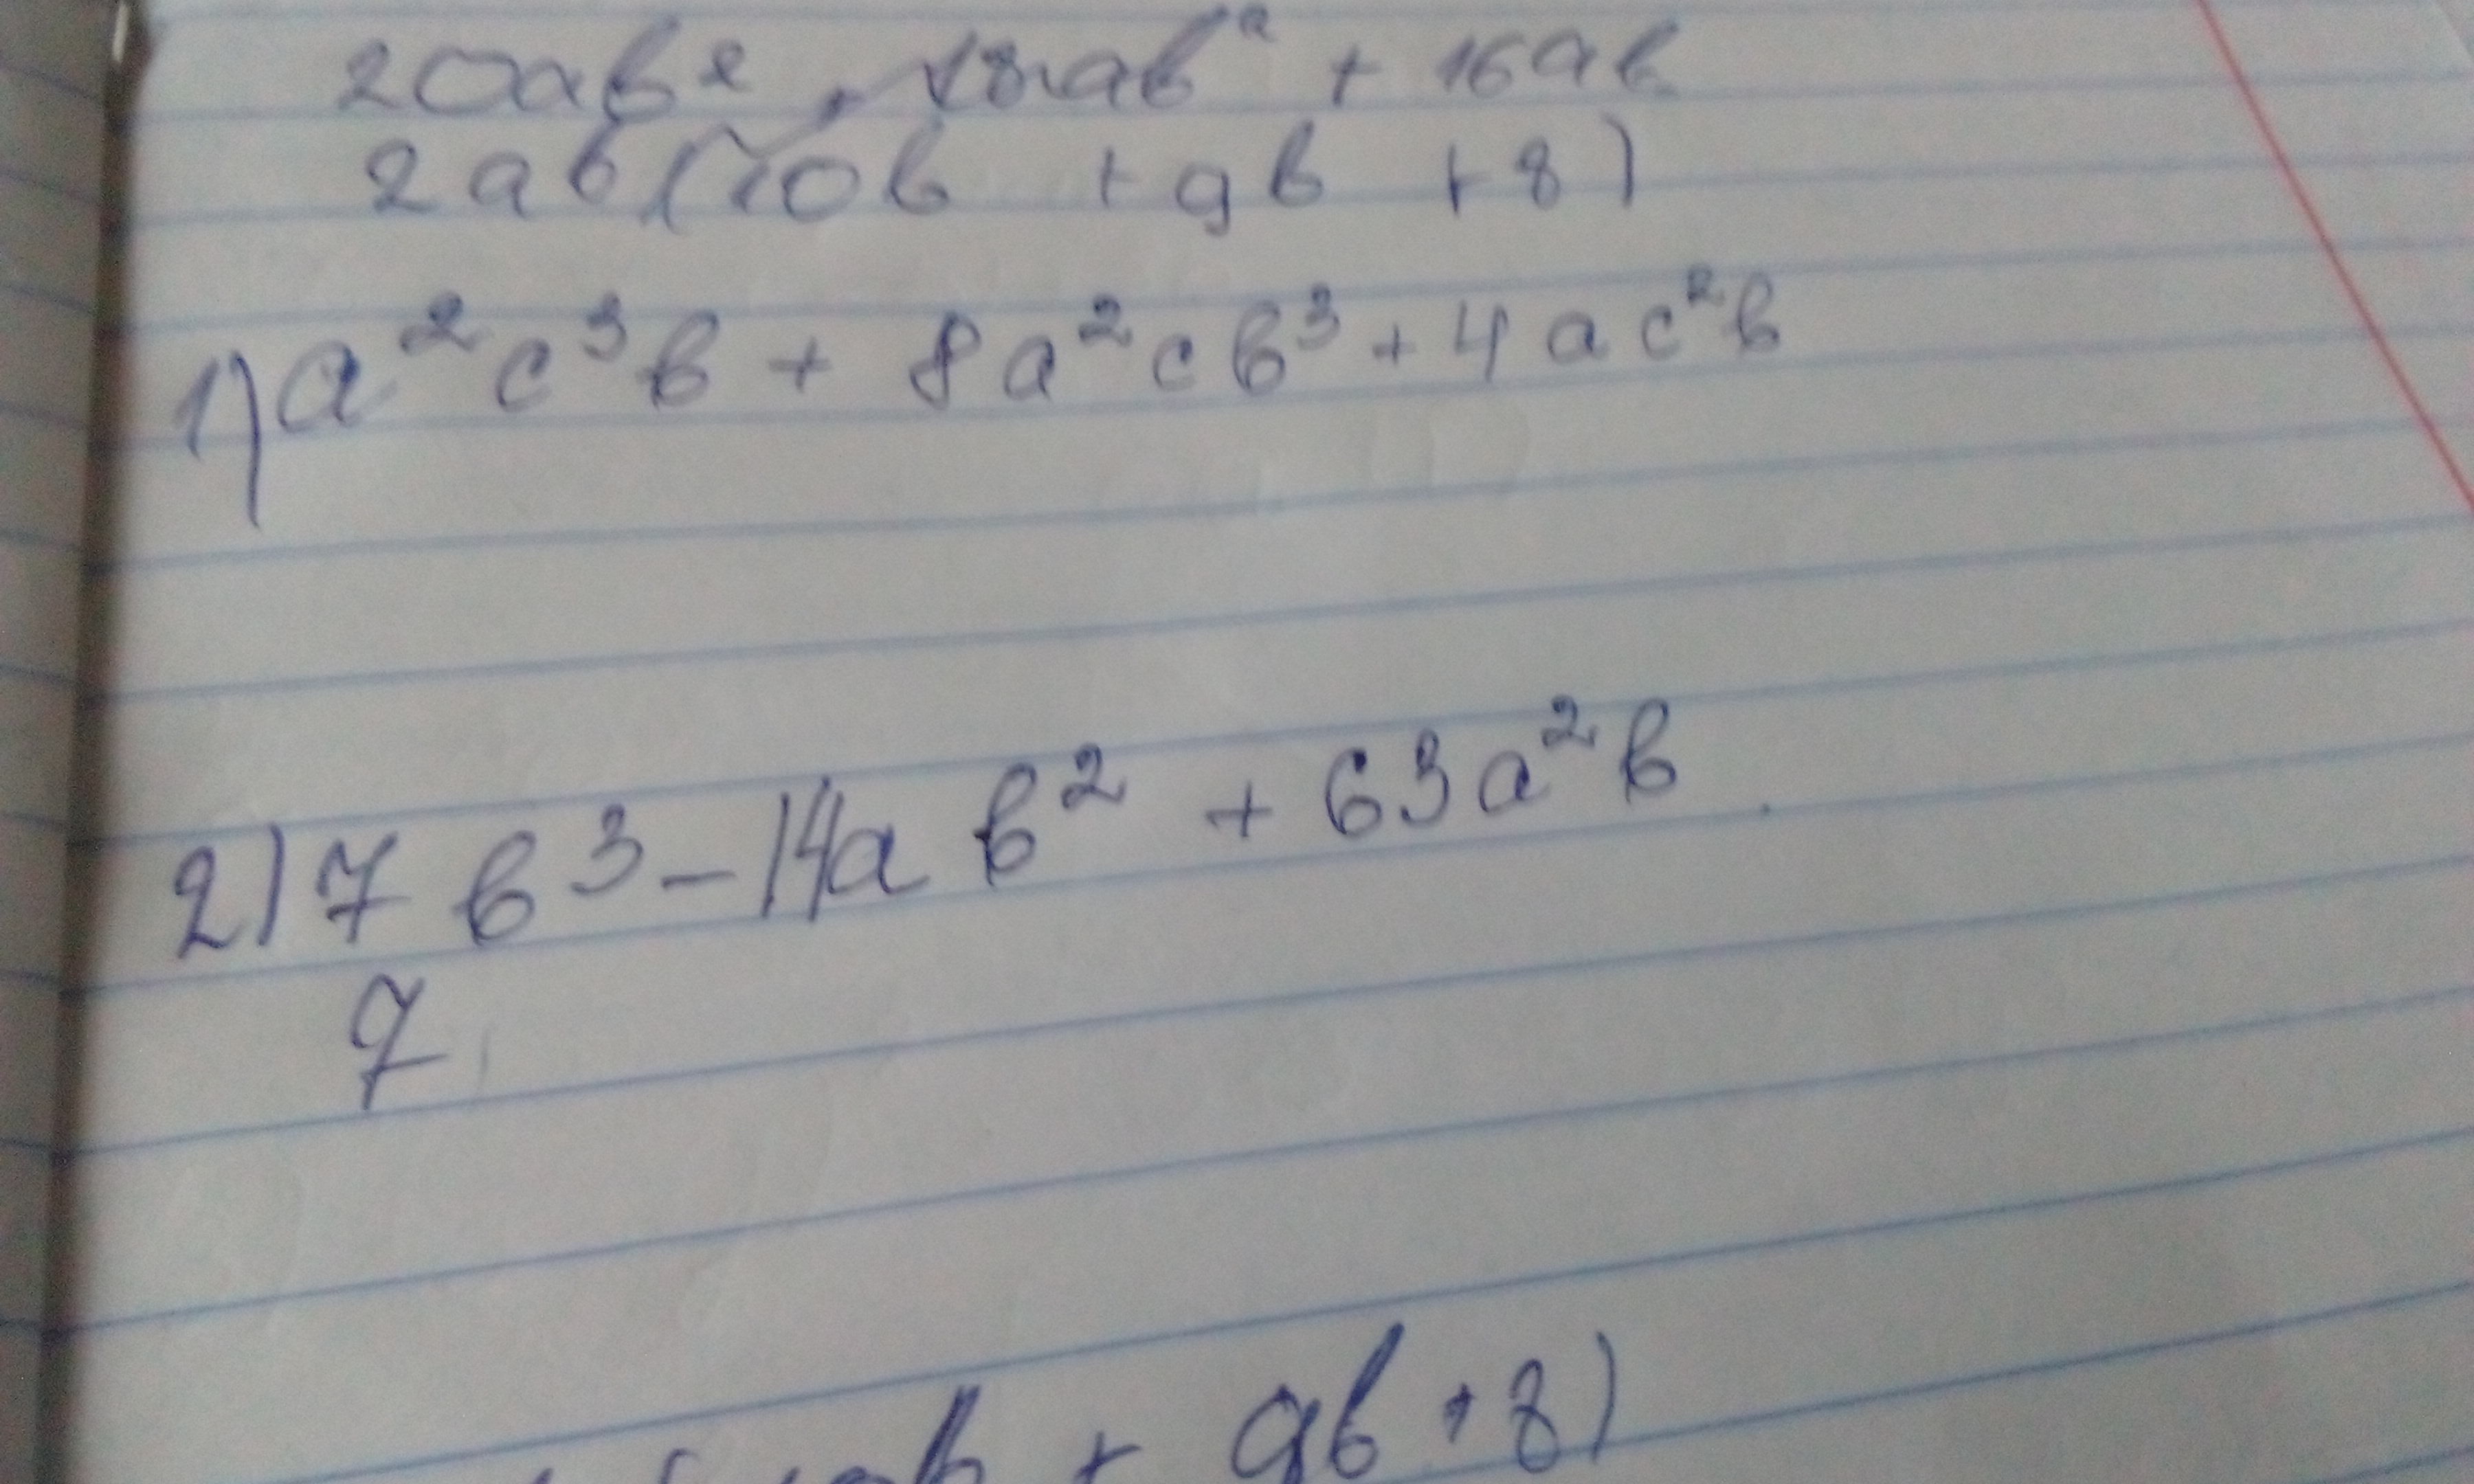 20ab² + 18ab² + 16ab
2ab(10b + 9b + 8)
1) a²c³b + 8a²cb³ + 4ac²b
2) 7b³ - 14ab² + 63a²b
7
+ 9b + 8)